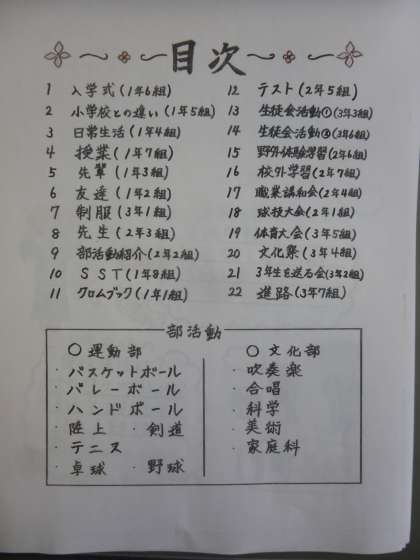 目次
1 入学式(1年6組)
2 小学校との違い(1年5組)
3 日常生活(1年4組)
4 授業(1年7組)
5 先輩(1年3組)
6 友達(1年2組)
7 制服(3年1組)
8 先生(2年3組)
9 部活動紹介(2年2組)
10 SST(1年8組)
11 クロムブック(1年1組)
12 テスト(2年5組)
13 生徒会活動①(3年3組)
14 生徒会活動②(3年6組)
15 野外体験学習(2年6組)
16 校外学習(2年7組)
17 職業講和会(2年4組)
18 球技大会(2年1組)
19 体育大会(3年5組)
20 文化祭(3年4組)
21 3年生を送る会(3年2組)
22 進路(3年7組)
部活動
○運動部
・バスケットボール
・バレーボール
・ハンドボール
・陸上 ・剣道
・テニス
・卓球 ・野球
○文化部
・吹奏楽
・合唱
・科学
・美術
・家庭科